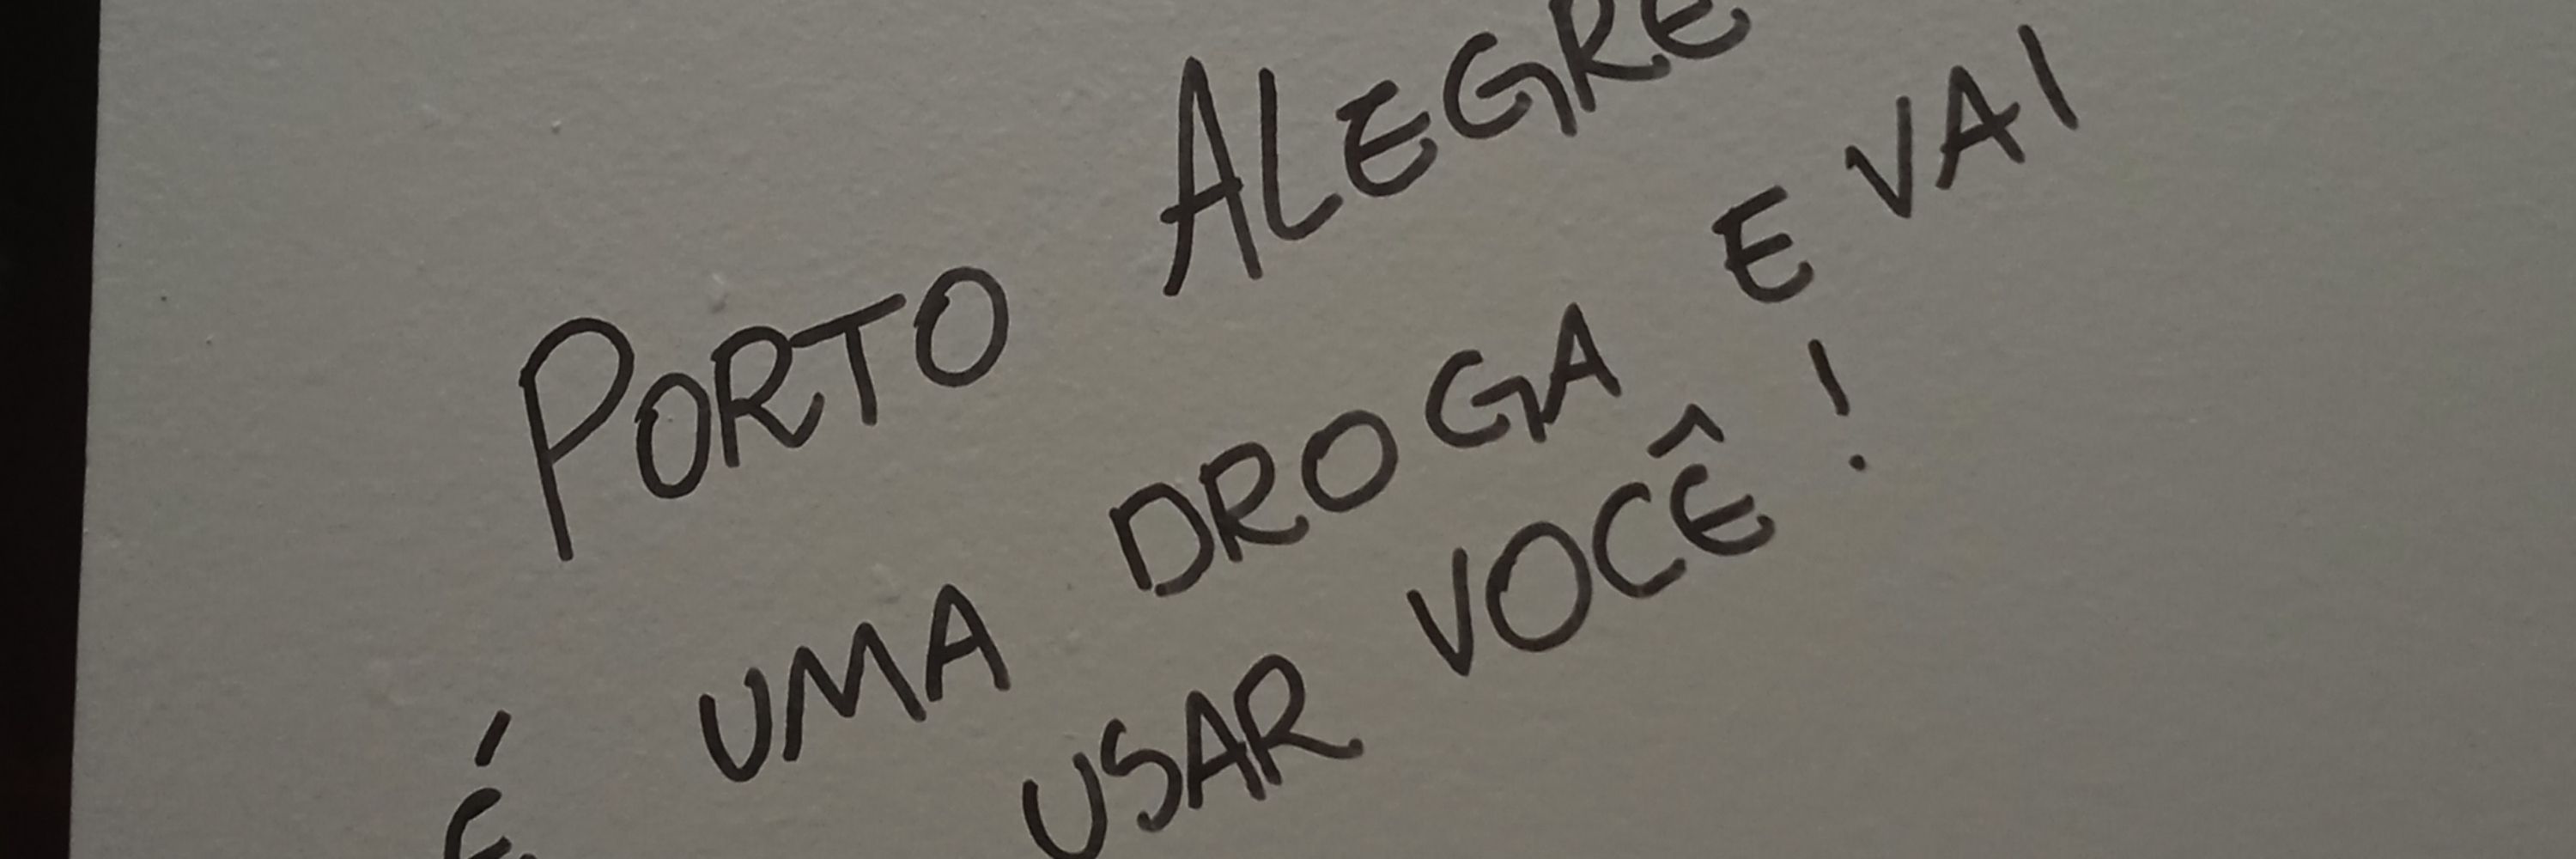 PORTO ALEGRE
É UMA DROGA E VAI
USAR VOCÊ!